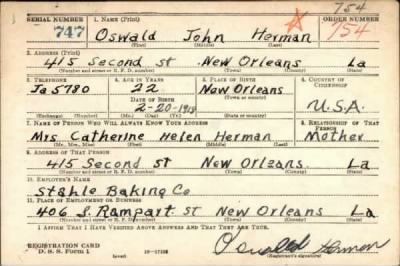 754
SERIAL NUMBER 1. NAME (Print) ORDER NUMBER
747 Oswald John Herman 754
(First) (Middle) (Last)
2. ADDRESS (Print)
415 Second st New Orleans La
(Number and street or R. F. D. number) (Town) (County) (State)
3. TELEPHONE 4. AGE IN YEARS 5. PLACE OF BIRTH 6. COUNTRY OF CITIZENSHIP
Ja 5780 22 New Orleans
DATE OF BIRTH (Town or county)
2-20-1918 U.S.A.
(Exchange) (Number) (Mo.) (Day) (Yr.) (State or country)
7. NAME OF PERSON WHO WILL ALWAYS KNOW YOUR ADDRESS 8. RELATIONSHIP OF THAT PERSON
Mrs Catherine Helen Herman Mother
(Mr., Mrs., Miss) (First) (Middle) (Last)
9. ADDRESS OF THAT PERSON
415 Second st New Orleans La
(Number and street or R. F. D. number) (Town) (County) (State)
10. EMPLOYER'S NAME
Stahle Baking Co
11. PLACE OF EMPLOYMENT OR BUSINESS
406 S. Rampart st New Orleans La
(Number and street or R. F. D. number) (Town) (County) (State)
I AFFIRM THAT I HAVE VERIFIED ABOVE ANSWERS AND THAT THEY ARE TRUE.
REGISTRATION CARD Oswald Herman
D. S. S. Form 1 (over) (Registrant's signature)